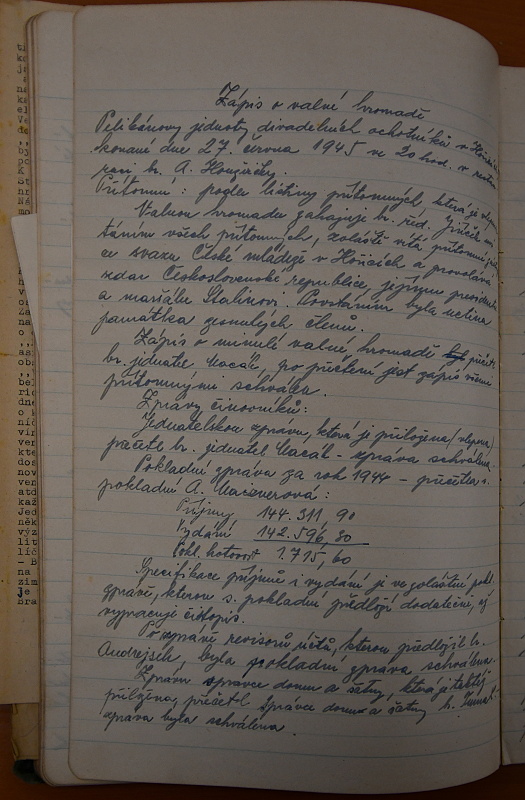 Zápis o valné hromadě
Pelikánovy jednoty divadelních ochotníků v Hořicích
konané dne 27. června 1945 ve 20 hod. v restau-
raci br. A. Honzírky.
Přítomni: podle listiny přítomných, která je
Valnou hromadu zahajuje br. řed. Jiříček
táním všech přítomných, zvláště vítá přítomné
ce svazu České mládeže v Hořicích a provolává
zdar Československé republice, jejímu presidentu
a maršálu Stalinovi. Povstáním byla uctěna
památka zesnulých členů.
Zápis o minulé valné hromadě přečetl
br. jednatel Macák, po přečtení jest zápis všemi
přítomnými schválen.
Zprávy činovníků:
Jednatelskou zprávu, která je přiložena, (vlepena)
přečte br. jednatel Macák - zpráva schválena.
Pokladní zpráva za rok 1944 - přečtla s.
pokladní A. Macnerová:
Příjmy 144.311,90
Vydání 142.596,30
Pokl. hotovost 1.715,60
Specifikace příjmů i vydání je ve zvláštní pokl.
zprávě, kterou s. pokladní předloží dodatečně, až
vypracuje čistopis.
Po zprávě revisorů účtů, kterou předložil br.
Andrejsek, byla pokladní zpráva schválena.
Zprávu správce domu a šatny, která je taktéž
přiložena, přečetl správce domu a šatny b.
zpráva byla schválena.